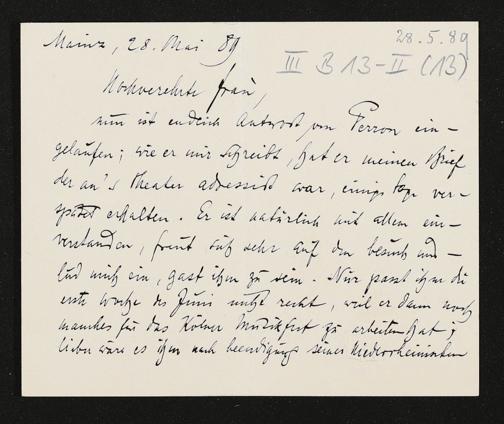 Mainz, 28. Mai 89
28.5.89
III B 13-II (13)
Hochverehrte Frau,
nun ist endlich Antwort von Perron ein-
gelaufen; wie er mir schreibt, hat er meinen Brief
der an's Theater adressirt war, einige Tage ver-
spätet erhalten. Er ist natürlich mit allem ein-
verstanden, freut sich sehr auf den Besuch und
lud mich ein, Gast ihm zu sein. Nur passt ihm die
erste Woche des Juni nicht recht, weil er dann noch
manches für das Kölner Musikfest zu arbeiten hat;
lieber wäre es ihm nach Beendigung seines Niederrheinischen